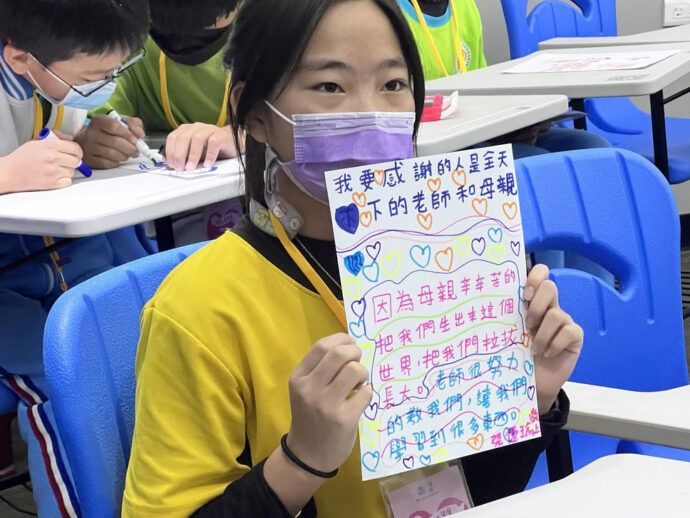 我要感謝的人是全天
下的老師和母親
因為母親辛辛苦苦的
把我們生出來這個
世界,把我們拉拔
長大。老師很努力
的教我們,讓我們
學習到很多東西。